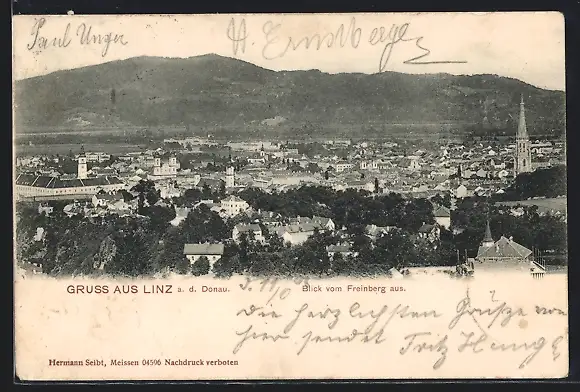 Paul Unger
H Ernstberger
GRUSS AUS LINZ a. d. Donau.
Blick vom Freinberg aus.
die herzlichsten Grüße von
hier sendet Fritz
Hermann Seibt, Meissen 04596 Nachdruck verboten